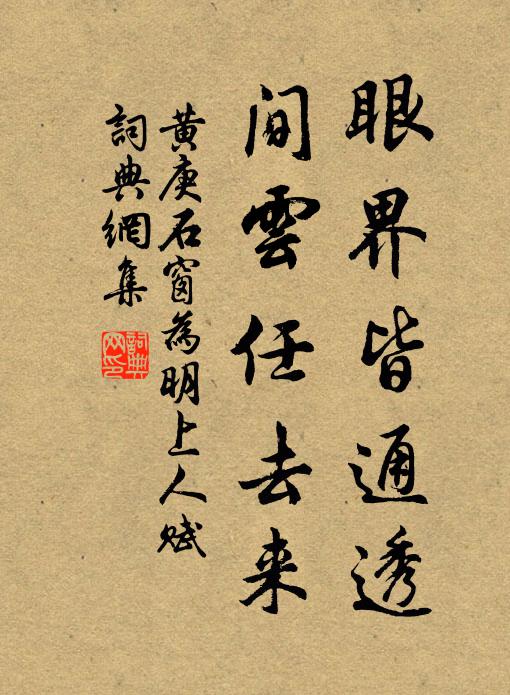 眼界皆通透
間雲任去来
黄庚石窗為明上人賦
詞典網集
詞典网印